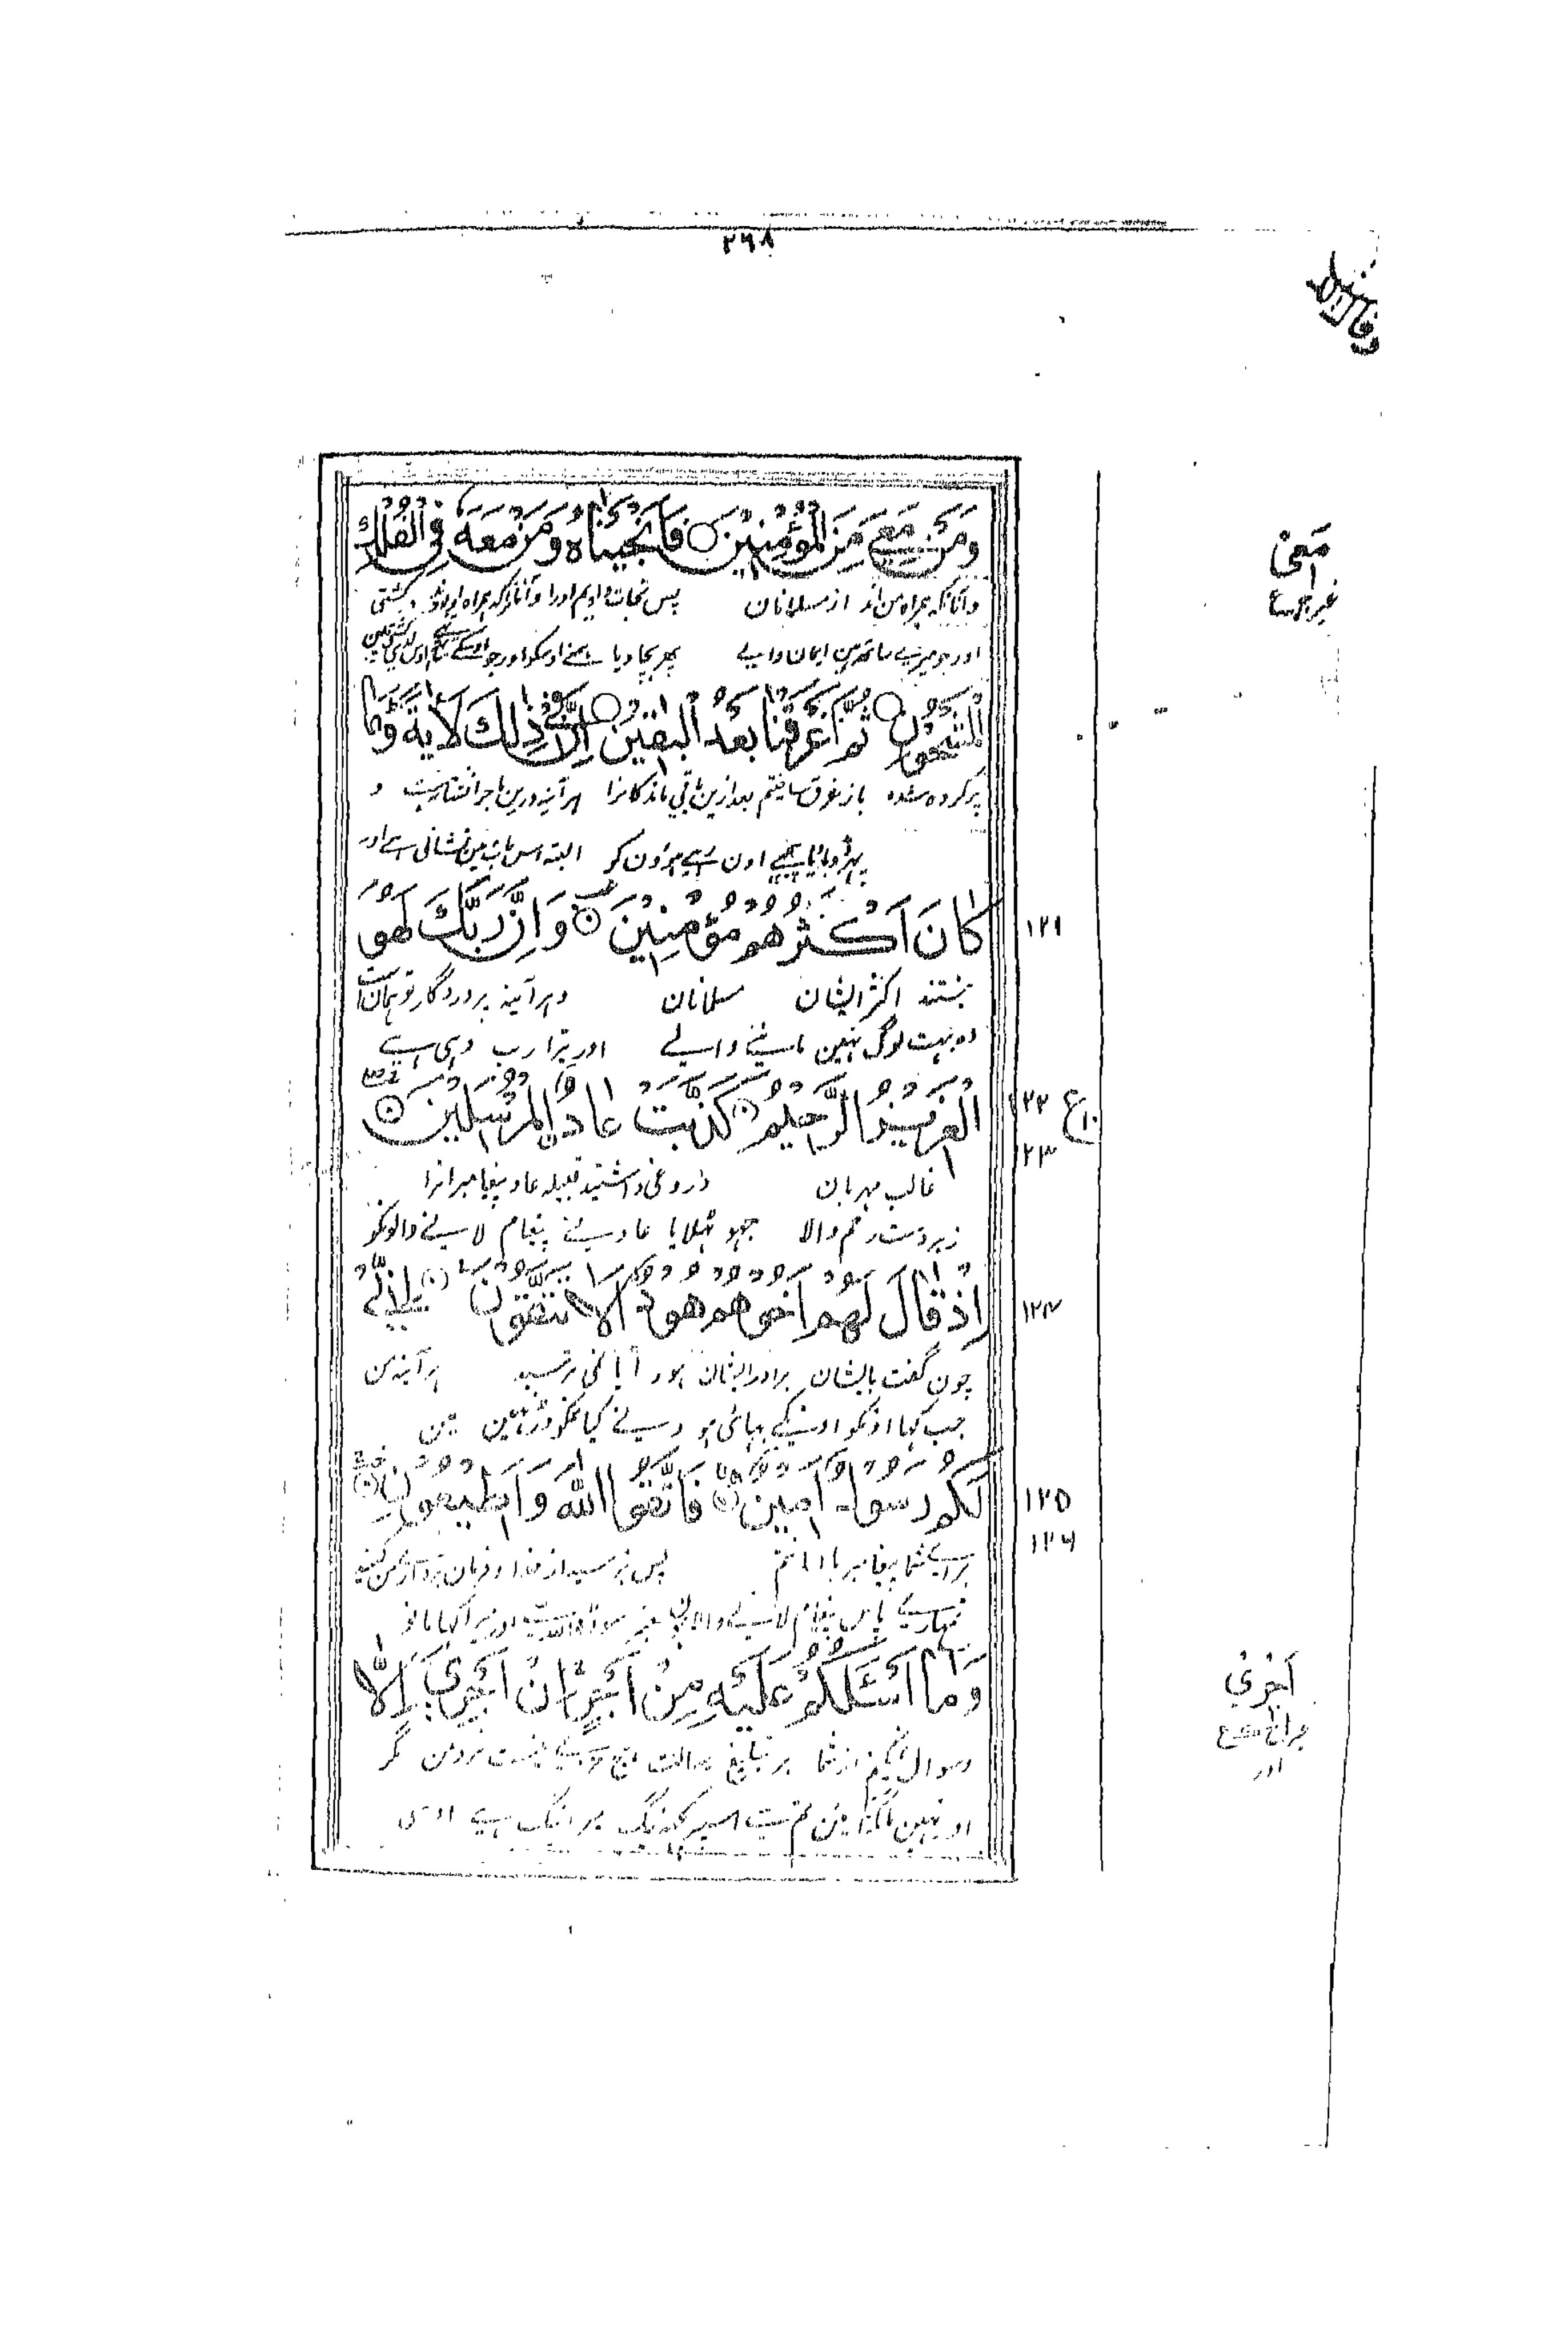 ۲۶۸
وَمَنْ مَّعِيَ مِنَ الْمُؤْمِنِيْنَ ○ فَاَنْجَيْنَاهُ وَمَنْ مَّعَهُ فِي الْفُلْكِ
وآنانکه همراه من اند از مسلمانان پس نجات دادیم او را و آنانکه همراه او بودند کشتی
اور جو میرے ساتھ ہین ایمان والے پھر بچا دیا ہمنے اوسکو اور جو اوسکے ساتھ
الْمَشْحُوْنِ ○ ثُمَّ اَغْرَقْنَا بَعْدُ الْبَاقِيْنَ ○ اِنَّ فِيْ ذٰلِكَ لَاٰيَةً وَّمَا
پر کرده شده باز غرق ساختیم بعد ازین باقی ماندگانرا هر آینه درین ماجرا نشانه‌ست و
اون رہے ہوؤن کو البتہ اس بات مین نشانی ہے اور
كَانَ اَكْثَرُهُمْ مُّؤْمِنِيْنَ ○ وَاِنَّ رَبَّكَ لَهُوَ
۱۲۱
نیستند اکثر ایشان مسلمانان و هر آینه پروردگار تو همان است
وہ بہت لوگ نہین ماننے والے اور تیرا رب وہی ہے
الْعَزِيْزُ الرَّحِيْمُ ○ كَذَّبَتْ عَادُ ِۨالْمُرْسَلِيْنَ ○
۱۲۲ ع
۱۲۳
غالب مهربان دروغی داشتند قبیله عاد پیغامبرانرا
زبردست رحم والا جھوٹھلایا عاد نے پیغام لانے والونکو
اِذْ قَالَ لَهُمْ اَخُوْهُمْ هُوْدٌ اَلَا تَتَّقُوْنَ ○ اِنِّيْ
۱۲۴
چون گفت بایشان برادر ایشان هود آیا نمی ترسید هر آینه من
جب کہا اونکو اونکے بھائی ہود نے کیا تمکو ڈر نہین مین
لَكُمْ رَسُوْلٌ اَمِيْنٌ ○ فَاتَّقُوا اللّٰهَ وَاَطِيْعُوْنِ ○
۱۲۵
۱۲۶
براے شما پیغامبر با امانتم پس بترسید از خدا و فرمان برداری من کنید
تمہارے پاس پیغام لانے والا ہون معتبر سو ڈرو اللہ سے اور میرا کہا مانو
وَمَا اَسْئَلُكُمْ عَلَيْهِ مِنْ اَجْرٍ اِنْ اَجْرِيَ اِلَّا
وسوال نمیکنم از شما بر تبلیغ رسالت هیچ مزدے نیست مزد من مگر
اور نہین مانگتا مین تم سے اسپر کچھ نیگ میرا نیگ ہے اوسی
مَعِيْ
اَجْرِيْ
اور